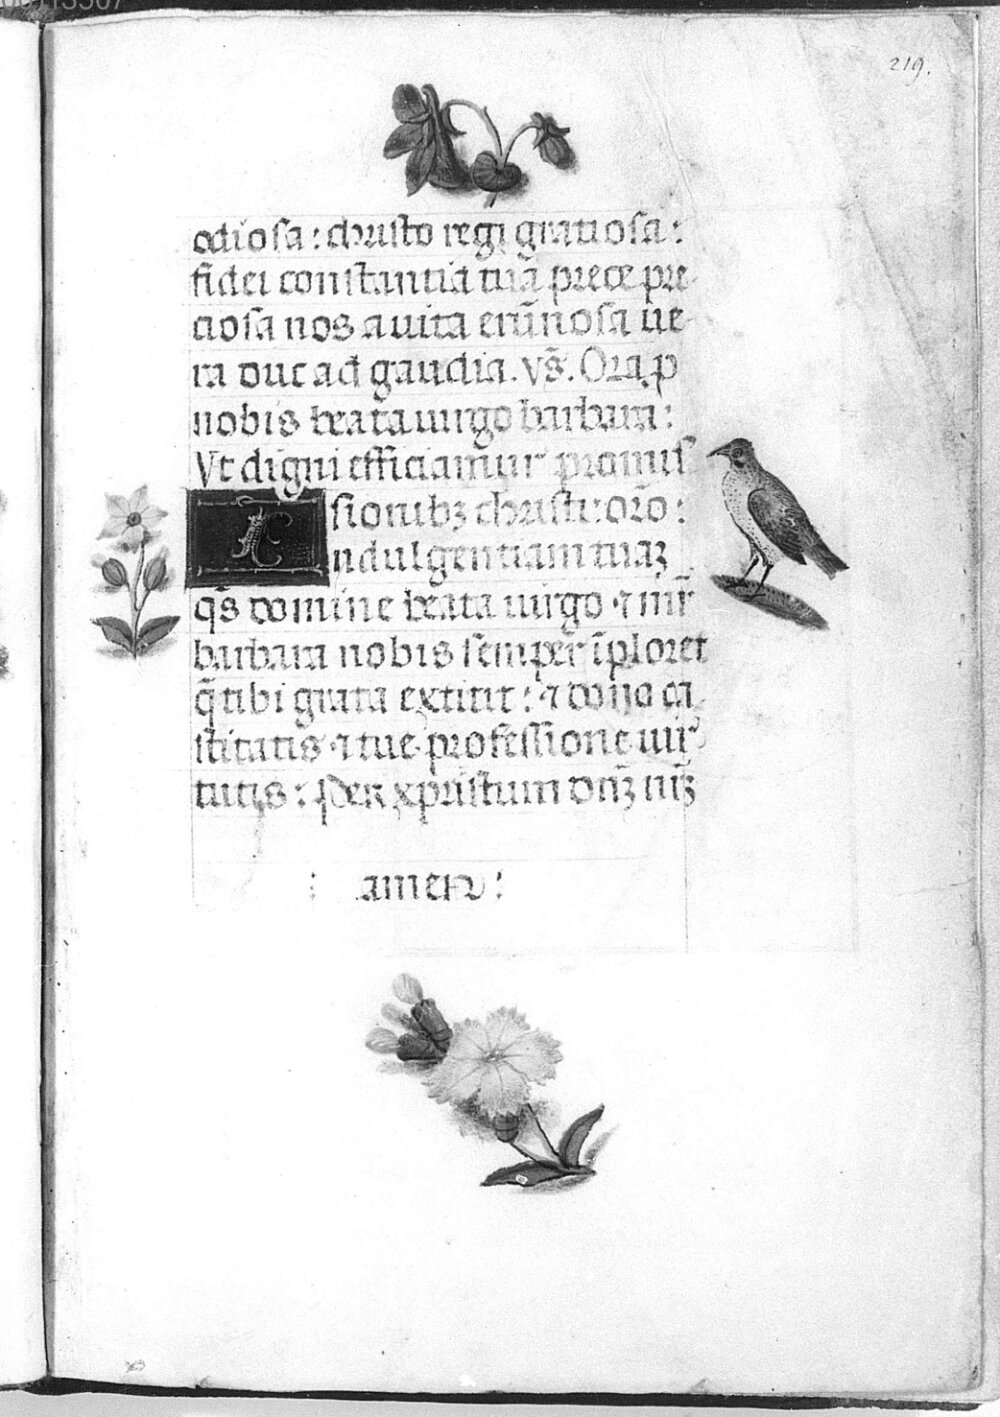 219.
odiosa : christo regi gratiosa :
fidei constantia tua prece pre-
ciosa nos a uita erūnosa ue-
ra duc ad gaudia. vs̄. Ora p
nobis beata uirgo barbara :
Vt digni efficiamur promis
sionibꝫ christi : orō :
Indulgentiam tuaꝫ
qs̄ domine beata uirgo ⁊ mr̄
barbara nobis semper īploret
q̄ tibi grata extitit : ⁊ dono ca
stitatis ⁊ tue professione uir
tutis : Per xpristum dn̄ꝫ nr̄ꝫ
: amen :